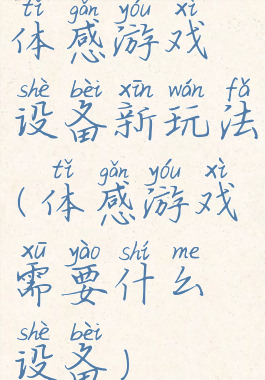 tǐ gǎn yóu xì
体感游戏
shè bèi xīn wán fǎ
设备新玩法
tǐ gǎn yóu xì
(体感游戏
xū yào shí me
需要什么
shè bèi
设备)